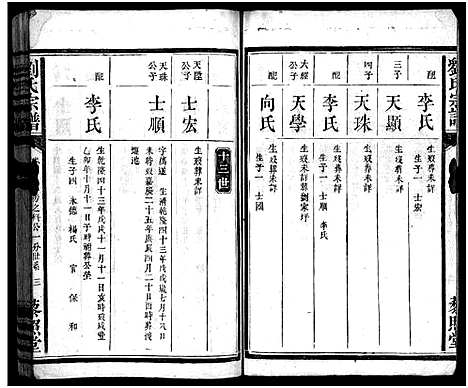 劉氏宗譜
配
李氏
生歿葬未詳
生子一 士宏
三子
天顯
生歿葬未詳
四子
天珠
生歿葬未詳
配
李氏
生歿葬未詳
生子一 士順
大經公子
天學
生歿未詳葬劉家坪
配
向氏
生歿葬未詳
生子一 士國
藜照堂
十三世
天陞公子
士宏
生歿葬未詳
天珠公子
士順
字萬遂 生清乾隆四十三年戊戌歲七月十
未時歿嘉慶二十五年庚辰四月二十日酉時葬
配
李氏
生乾隆四十三年戊戌十一月十一日亥時歿咸豐
乙卯年十月十一日子時
生子四 永德 楊氏 官保 和
劉氏宗譜
藜照堂